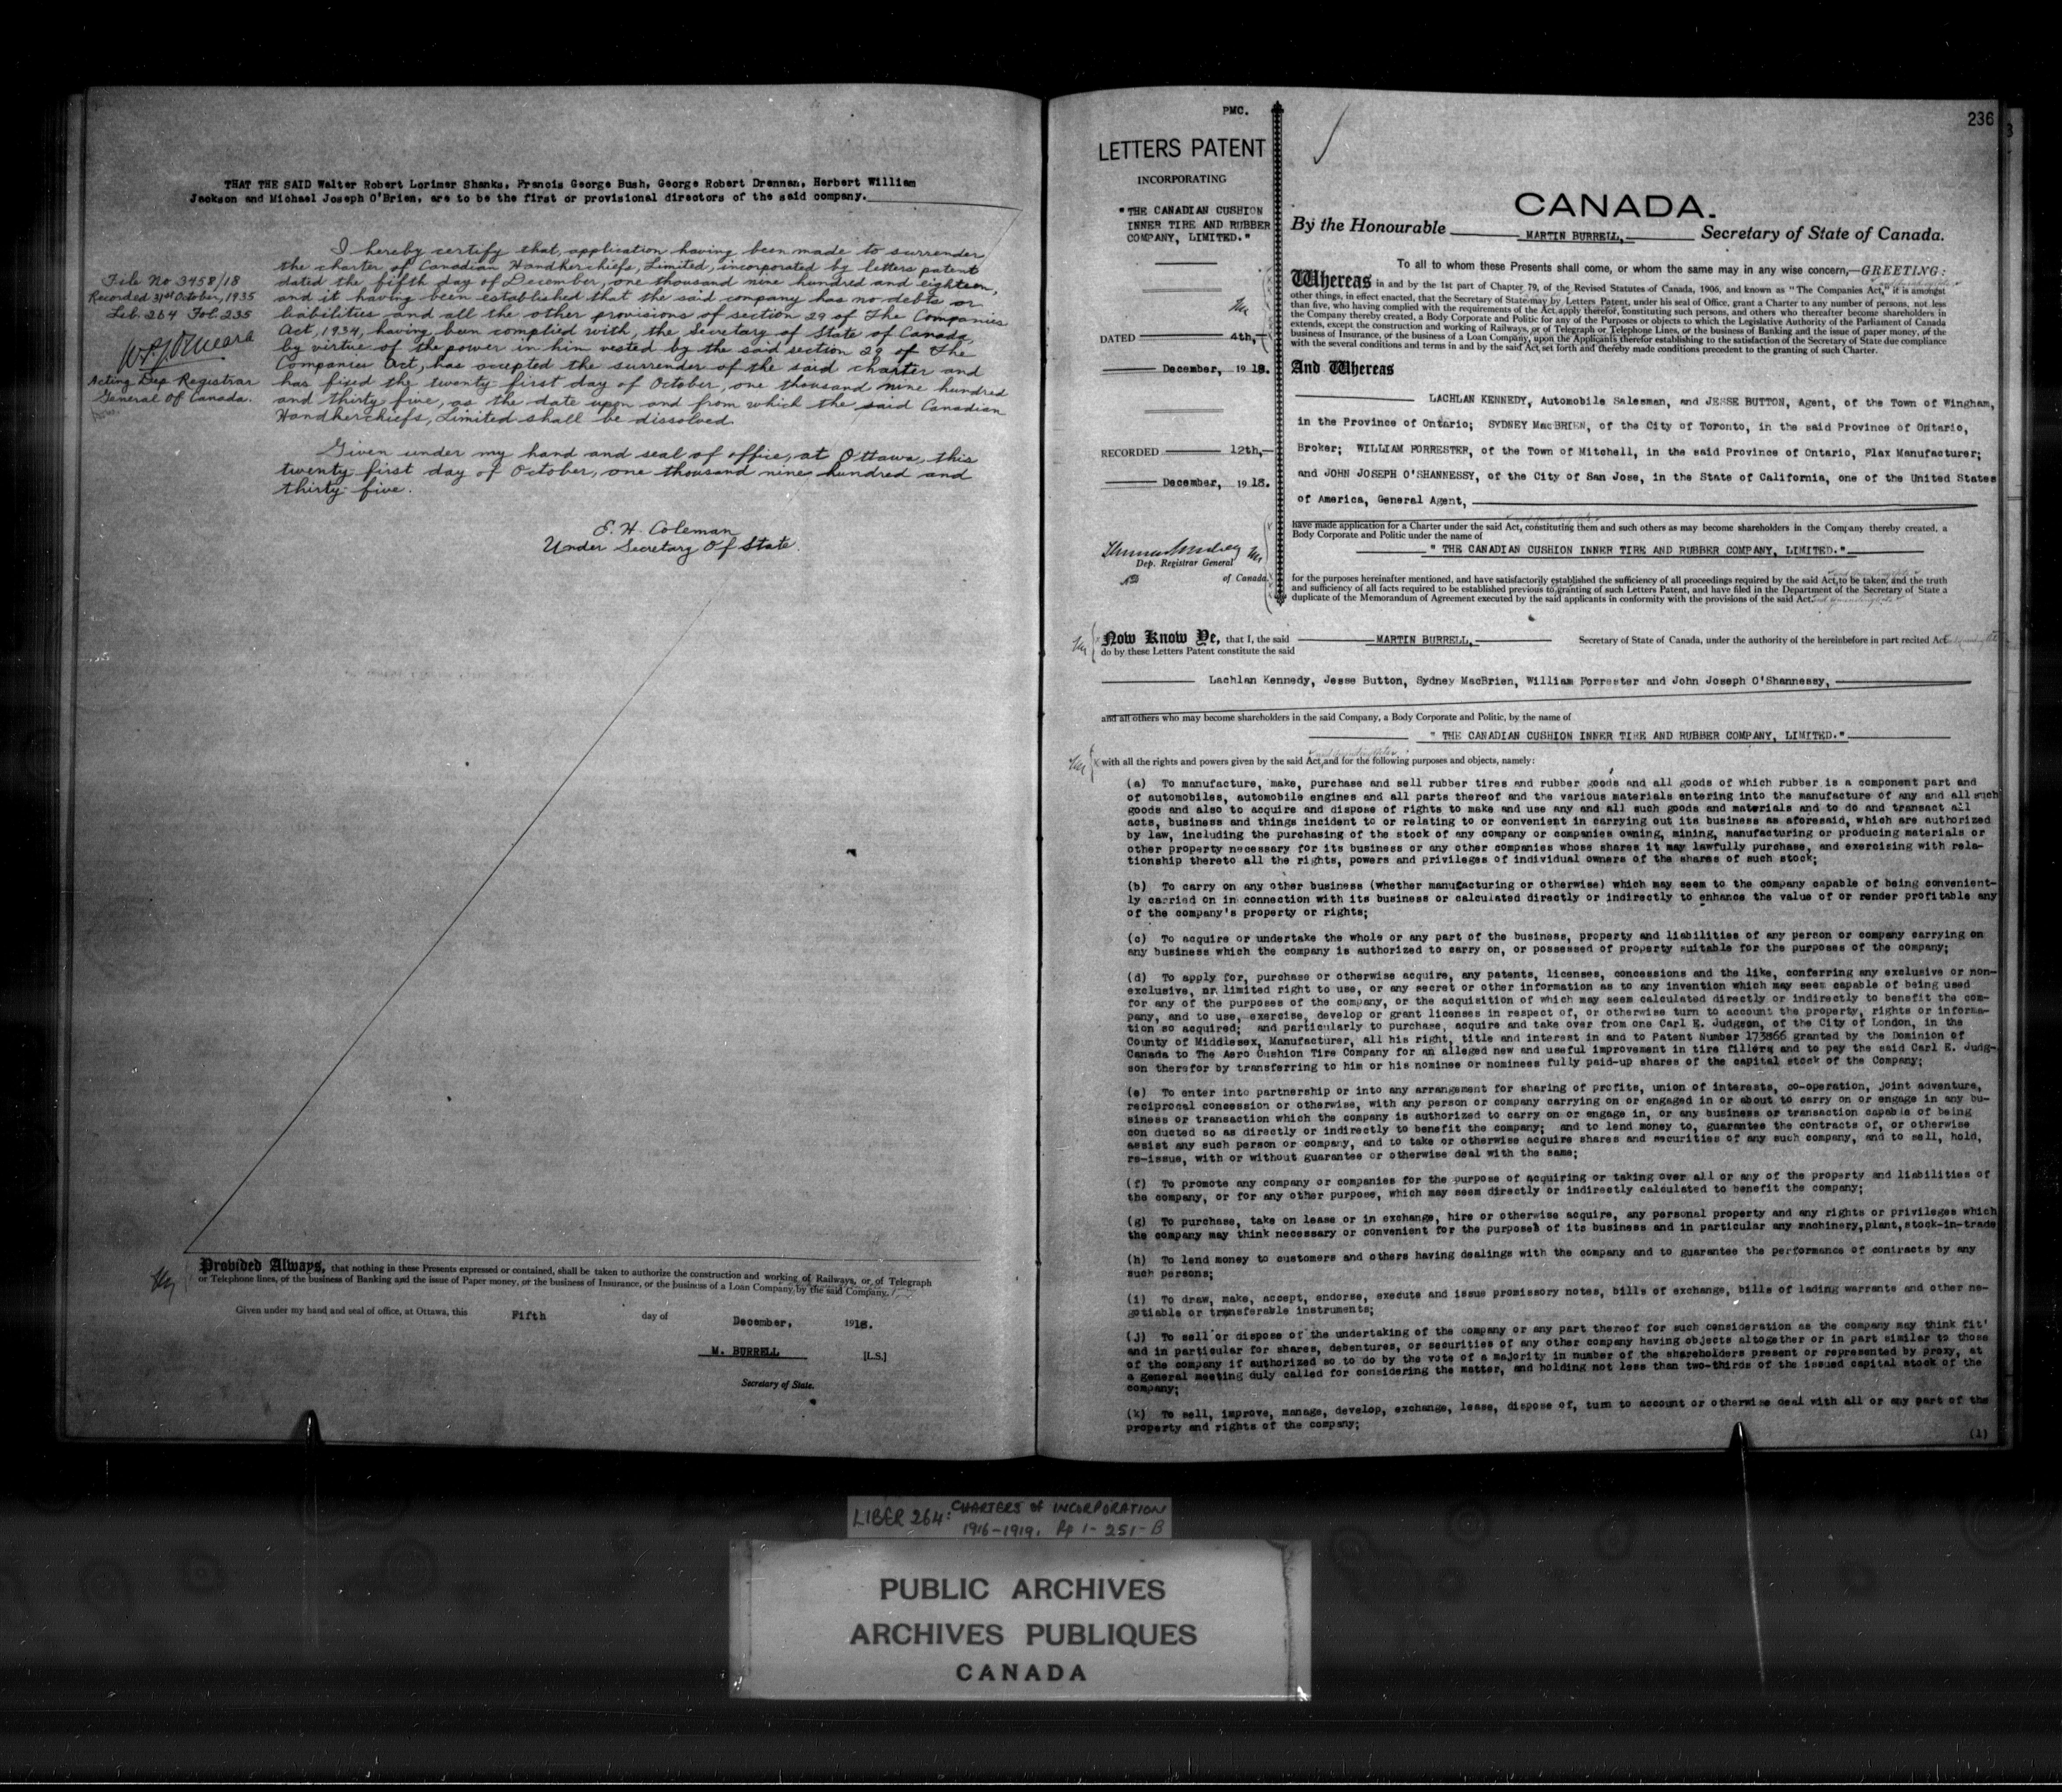 THAT THE SAID Walter Robert Lorimer Shanks, Francis George Bush, George Robert Drennan, Herbert William
Jackson and Michael Joseph O'Brien, are to be the first or provisional directors of the said company.
File No 3458/18
Recorded 31st October, 1935
Lib. 264 Fol. 235
Acting Dep Registrar
General Of Canada.
I hereby certify that, application having been made to surrender
the charter of Canadian Handkerchiefs, Limited, incorporated by letters patent
dated the fifth day of December, one thousand nine hundred and eighteen,
and it having been established that the said company has no debts or
liabilities and all the other provisions of section 29 of The Companies
Act, 1934, having been complied with, the Secretary of State of Canada,
by virtue of the power in him vested by the said section 29 of The
Companies Act, has accepted the surrender of the said charter and
has fixed the twenty first day of October, one thousand nine hundred
and thirty five, as the date upon and from which the said Canadian
Handkerchiefs, Limited shall be dissolved.
Given under my hand and seal of office, at Ottawa, this
twenty first day of October, one thousand nine hundred and
thirty five.
E. H. Coleman
Under Secretary Of State.
Provided Always, that nothing in these Presents expressed or contained, shall be taken to authorize the construction and working of Railways, or of Telegraph
or Telephone lines, or the business of Banking and the issue of Paper money, or the business of Insurance, or the business of a Loan Company, by the said Company.
Given under my hand and seal of office, at Ottawa, this Fifth day of December, 1918.
M. BURRELL [L.S.]
Secretary of State.
PMC.
236
LETTERS PATENT
INCORPORATING
"THE CANADIAN CUSHION
INNER TIRE AND RUBBER
COMPANY, LIMITED."
DATED 4th,
December, 1918.
RECORDED 12th,
December, 1918.
Dep. Registrar General
of Canada.
CANADA.
By the Honourable MARTIN BURRELL, Secretary of State of Canada.
To all to whom these Presents shall come, or whom the same may in any wise concern,—GREETING:
Whereas in and by the 1st part of Chapter 79, of the Revised Statutes of Canada, 1906, and known as "The Companies Act," it is amongst
other things, in effect enacted, that the Secretary of State may by Letters Patent, under his seal of Office, grant a Charter to any number of persons, not less
than five, who having complied with the requirements of the Act, apply therefor, constituting such persons, and others who thereafter become shareholders in
the Company thereby created, a Body Corporate and Politic for any of the Purposes or objects to which the Legislative Authority of the Parliament of Canada
extends, except the construction and working of Railways, or of Telegraph or Telephone Lines, or the business of Banking and the issue of paper money, of the
business of Insurance, or the business of a Loan Company, upon the Applicants therefor establishing to the satisfaction of the Secretary of State due compliance
with the several conditions and terms in and by the said Act, set forth and thereby made conditions precedent to the granting of such Charter.
And Whereas
LACHLAN KENNEDY, Automobile Salesman, and JESSE BUTTON, Agent, of the Town of Wingham,
in the Province of Ontario; SYDNEY MacBRIEN, of the City of Toronto, in the said Province of Ontario,
Broker; WILLIAM FORRESTER, of the Town of Mitchell, in the said Province of Ontario, Flax Manufacturer;
and JOHN JOSEPH O'SHANNESSY, of the City of San Jose, in the State of California, one of the United States
of America, General Agent,
have made application for a Charter under the said Act, constituting them and such others as may become shareholders in the Company thereby created, a
Body Corporate and Politic under the name of
" THE CANADIAN CUSHION INNER TIRE AND RUBBER COMPANY, LIMITED."
for the purposes hereinafter mentioned, and have satisfactorily established the sufficiency of all proceedings required by the said Act, to be taken, and the truth
and sufficiency of all facts required to be established previous to granting of such Letters Patent, and have filed in the Department of the Secretary of State a
duplicate of the Memorandum of Agreement executed by the said applicants in conformity with the provisions of the said Act.
Now Know Ye, that I, the said MARTIN BURRELL, Secretary of State of Canada, under the authority of the hereinbefore in part recited Act
do by these Letters Patent constitute the said
Lachlan Kennedy, Jesse Button, Sydney MacBrien, William Forrester and John Joseph O'Shannessy,
and all others who may become shareholders in the said Company, a Body Corporate and Politic, by the name of
" THE CANADIAN CUSHION INNER TIRE AND RUBBER COMPANY, LIMITED."
with all the rights and powers given by the said Act, and for the following purposes and objects, namely:
(a) To manufacture, make, purchase and sell rubber tires and rubber goods and all goods of which rubber is a component part and
of automobiles, automobile engines and all parts thereof and the various materials entering into the manufacture of any and all such
goods and also to acquire and dispose of rights to make and use any and all such goods and materials and to do and transact all
acts, business and things incident to or relating to or convenient in carrying out its business as aforesaid, which are authorized
by law, including the purchasing of the stock of any company or companies owning, mining, manufacturing or producing materials or
other property necessary for its business or any other companies whose shares it may lawfully purchase, and exercising with rela-
tionship thereto all the rights, powers and privileges of individual owners of the shares of such stock;
(b) To carry on any other business (whether manufacturing or otherwise) which may seem to the company capable of being convenient-
ly carried on in connection with its business or calculated directly or indirectly to enhance the value of or render profitable any
of the company's property or rights;
(c) To acquire or undertake the whole or any part of the business, property and liabilities of any person or company carrying on
any business which the company is authorized to carry on, or possessed of property suitable for the purposes of the company;
(d) To apply for, purchase or otherwise acquire, any patents, licenses, concessions and the like, conferring any exclusive or non-
exclusive, or limited right to use, or any secret or other information as to any invention which may seem capable of being used
for any of the purposes of the company, or the acquisition of which may seem calculated directly or indirectly to benefit the com-
pany, and to use, exercise, develop or grant licenses in respect of, or otherwise turn to account the property, rights or informa-
tion so acquired; and particularly to purchase, acquire and take over from one Carl E. Judgson, of the City of London, in the
County of Middlesex, Manufacturer, all his right, title and interest in and to Patent Number 173866 granted by the Dominion of
Canada to The Aero Cushion Tire Company for an alleged new and useful improvement in tire fillers and to pay the said Carl E. Judg-
son therefor by transferring to him or his nominee or nominees fully paid-up shares of the capital stock of the Company;
(e) To enter into partnership or into any arrangement for sharing of profits, union of interests, co-operation, joint adventure,
reciprocal concession or otherwise, with any person or company carrying on or engaged in or about to carry on or engage in any bu-
siness or transaction which the company is authorized to carry on or engage in, or any business or transaction capable of being
con ducted so as directly or indirectly to benefit the company; and to lend money to, guarantee the contracts of, or otherwise
assist any such person or company, and to take or otherwise acquire shares and securities of any such company, and to sell, hold,
re-issue, with or without guarantee or otherwise deal with the same;
(f) To promote any company or companies for the purpose of acquiring or taking over all or any of the property and liabilities of
the company, or for any other purpose, which may seem directly or indirectly calculated to benefit the company;
(g) To purchase, take on lease or in exchange, hire or otherwise acquire, any personal property and any rights or privileges which
the company may think necessary or convenient for the purposes of its business and in particular any machinery,plant,stock-in-trade
(h) To lend money to customers and others having dealings with the company and to guarantee the performance of contracts by any
such persons;
(i) To draw, make, accept, endorse, execute and issue promissory notes, bills of exchange, bills of lading warrants and other ne-
gotiable or transferable instruments;
(j) To sell or dispose of the undertaking of the company or any part thereof for such consideration as the company may think fit'
and in particular for shares, debentures, or securities of any other company having objects altogether or in part similar to those
of the company if authorized so to do by the vote of a majority in number of the shareholders present or represented by proxy, at
a general meeting duly called for considering the matter, and holding not less than two-thirds of the issued capital stock of the
company;
(k) To sell, improve, manage, develop, exchange, lease, dispose of, turn to account or otherwise deal with all or any part of the
property and rights of the company;
(1)
LIBER 264: CHARTERS of INCORPORATION
1916-1919. Pp 1- 251-B
PUBLIC ARCHIVES
ARCHIVES PUBLIQUES
CANADA